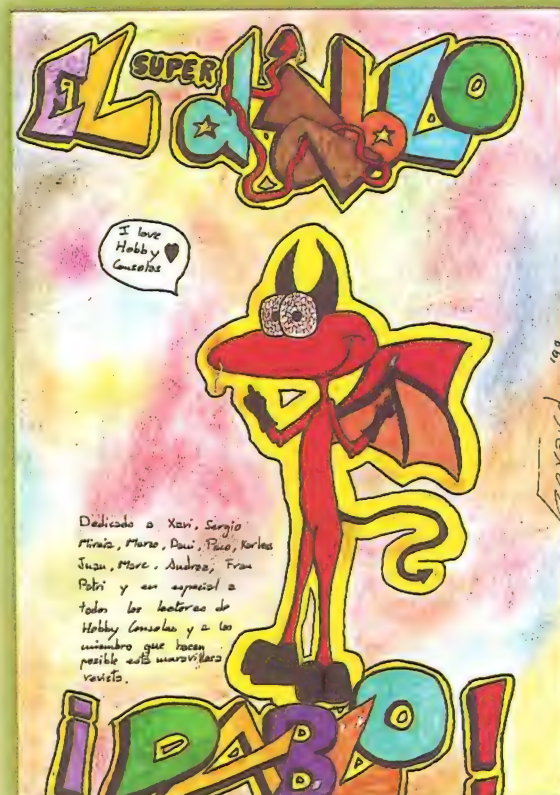 EL SUPER DIABLO
I love
Hobby
Consolas
Dedicado a Xavi, Sergio
Mireia, Marzo, Dani, Paco, Karlos
Juan, Marc, Andrea, Fran
Patri y en especial a
todos los lectores de
Hobby Consolas y a los
miembro que hacen
posible esta maravillosa
revista.
'99